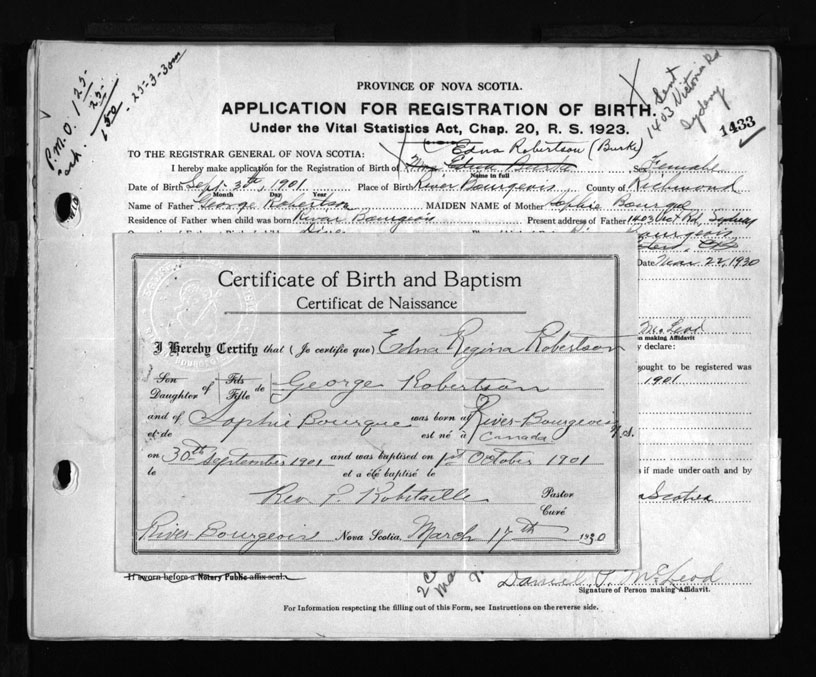 P.M.O. 125-
25-
150 - 25-3-30
Sent
1403 Victoria Rd
Sydney
1433
PROVINCE OF NOVA SCOTIA.
APPLICATION FOR REGISTRATION OF BIRTH.
Under the Vital Statistics Act, Chap. 20, R. S. 1923.
Edna Robertson (Burke)
TO THE REGISTRAR GENERAL OF NOVA SCOTIA:
I hereby make application for the Registration of Birth of Mrs Edna Burke Sex Female
Name in full
Date of Birth Sept. 30th, 1901 Place of Birth River Bourgeois County of Richmond
Month Day Year
Name of Father George Robertson MAIDEN NAME of Mother Sophie Bourque
Residence of Father when child was born River Bourgeois Present address of Father 1403 Vict Rd, Sydney
Bourgeois
Date Mar 22, 1930
Certificate of Birth and Baptism
Certificat de Naissance
I Hereby Certify that (Je certifie que) Edna Regina Robertson
McLeod
making Affidavit
declare:
Son Fils
Daughter of Fille de George Robertson
sought to be registered was
1901
and of Sophie Bourque was born at River-Bourgeois
et de est né à Canada N.S.
on 30th September 1901 and was baptised on 1st October 1901
le et a été baptisé le
if made under oath and by
Rev P. Robitaille Pastor
Curé
Scotia
River-Bourgeois Nova Scotia, March 17th 1930
If sworn before a Notary Public affix seal.
Daniel P. McLeod
Signature of Person making Affidavit.
For Information respecting the filling out of this Form, see Instructions on the reverse side.